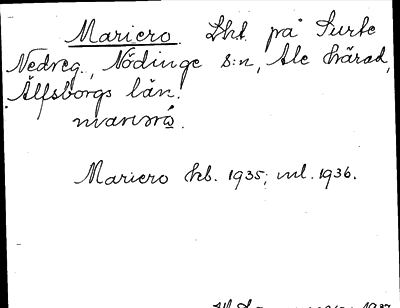 Mariero. Lht. på Surte
Nedreg., Nödinge s:n, Ale härad,
Älfsborgs län.
Mariero hb. 1935; ml. 1936.